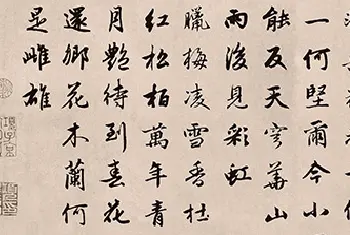 一何堅爾今小
能反天穹華山
雨後見彩虹
臘梅凌雪香
紅松柏萬年青
月艷待到春花
還鄉花木蘭何
是雌雄